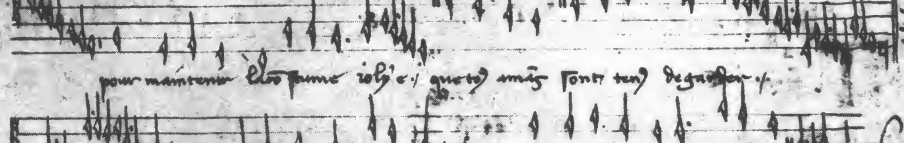 pour maintenir l'amoureuse iolye / que to9 amãs sont ten9 de garder ./